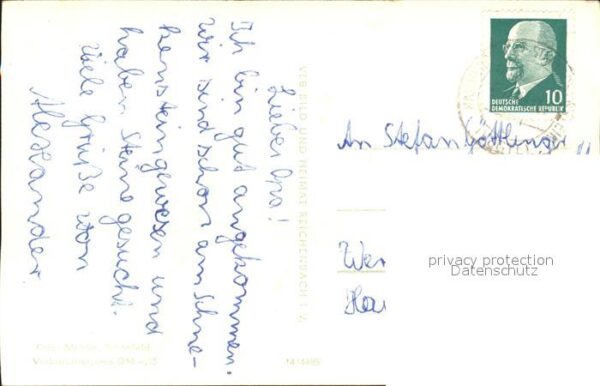 Lieber Opa!
Ich bin gut angekommen.
Wir sind schon am Schne-
kenstein gewesen und
haben Steine gesucht.
Viele Grüße von
Alexander
VEB BILD UND HEIMAT REICHENBACH I. V.
10
DEUTSCHE
DEMOKRATISCHE REPUBLIK
An Stefan Göttlinger
Wer
Hau
privacy protection
Datenschutz